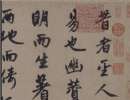 昔者聖人
易也幽贊
明而生蓍
兩地而倚